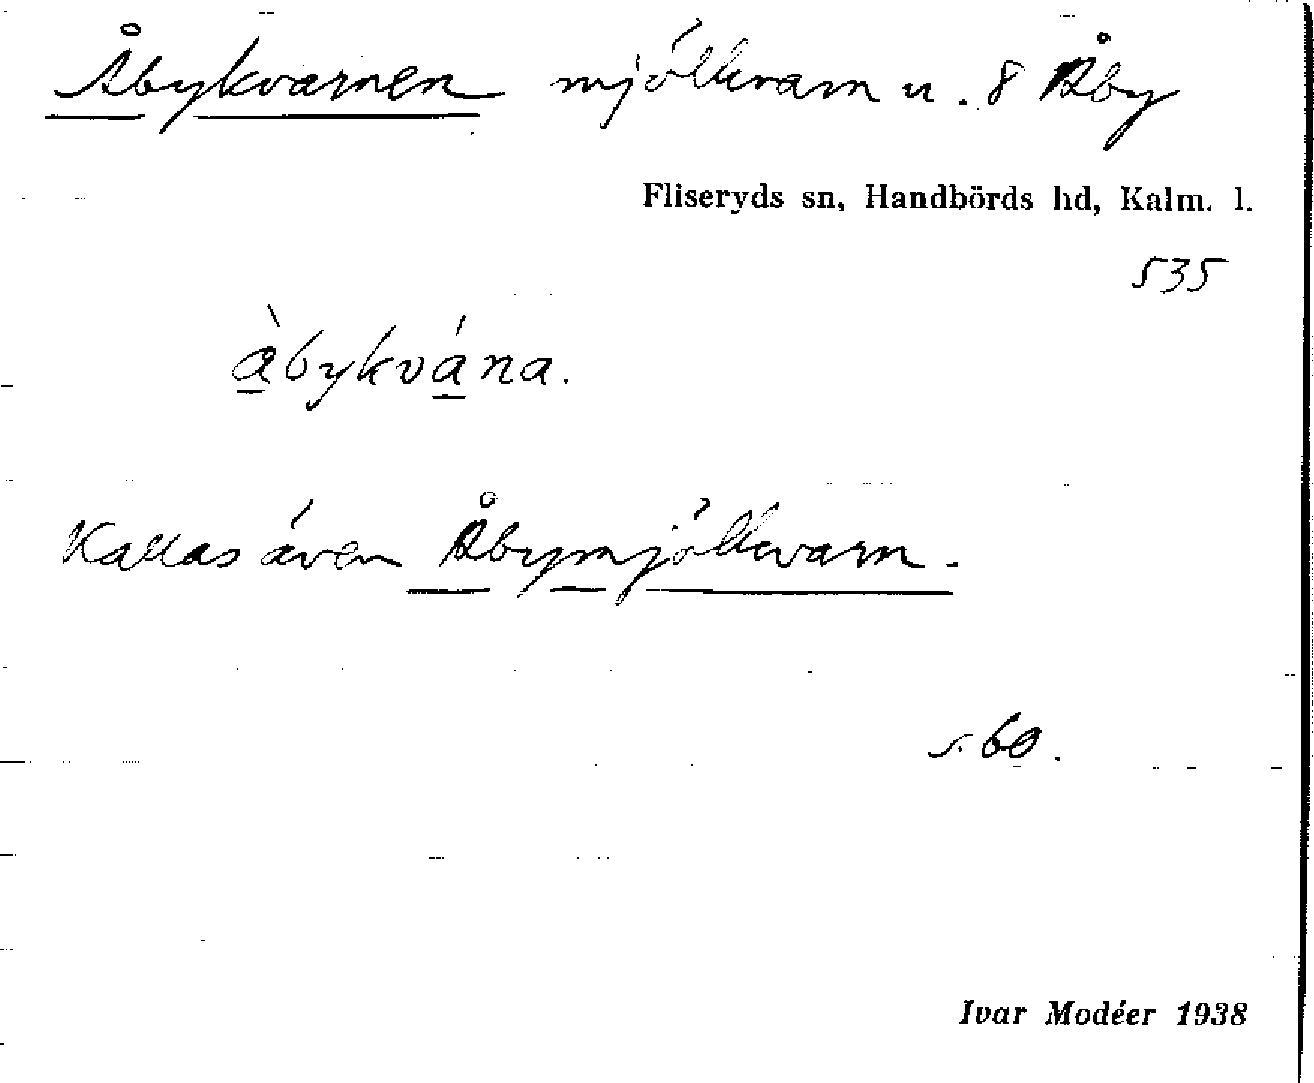 Åbykvarnen mjölkvarn u. 8 Åby
Fliseryds sn, Handbörds hd, Kalm. l.
535
å̀bykvána.
Kallas även Åbymjölkvarn.
s. 60.
Ivar Modéer 1938